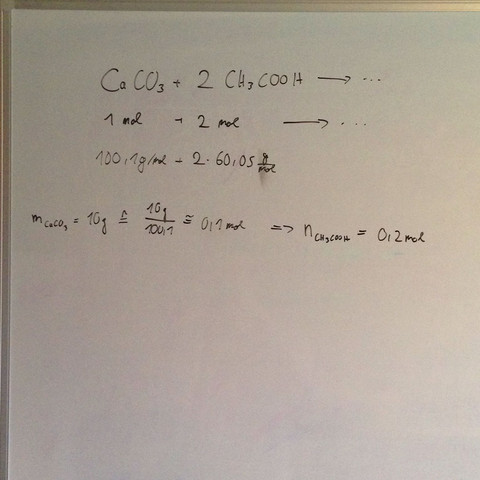 CaCO₃ + 2 CH₃COOH → ...
1 mol + 2 mol → ...
100,1 g/mol + 2·60,05 g/mol
m_CaCO₃ = 10g ≙ 10g/100,1 ≅ 0,1 mol => n_CH₃COOH = 0,2 mol